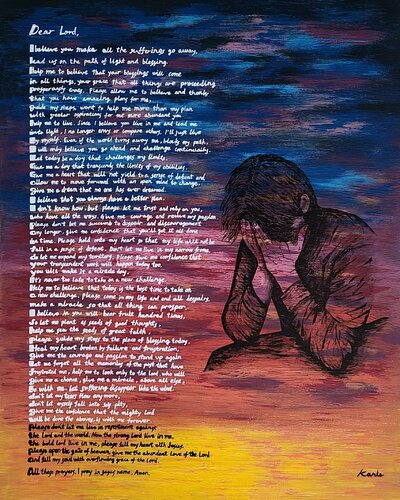 Dear Lord,
I believe you make all the sufferings go away,
Lead us on the path of light and blessing.
Help me to believe that your blessings will come
in all things, your grace that all things are proceeding
prosperously ends. Please allow me to believe and thank
that you have amazing plans for me,
Guide my steps, want to help me more than my plan
with greater aspirations for our more abundant you
Help me to live. Since I believe you live in me and lead me
into light, I no longer envy or compare others, I'll just like
My myself. Even if the world turns away me, bless my path,
I will only believe you go ahead and challenge continually.
Let today be a day that challenges my limits,
a day that transcends the limits of my abilities,
Give me a heart that will not yield to a sense of defeat and
Allow me to move forward with an open mind to change.
Give me a dream that no one has ever dreamed.
I believe that you always have a better plan.
I don't know how, but please let me trust and rely on you,
who have all the ways. Give me courage and restore my passion
Please don't let me succumb to despair and discouragement
any longer. Give me confidence that you'll get it all done
on time. Please hold onto my heart so that my life will not be
full in a sense of defeat. Don't let me live in my narrow frame.
Let me go beyond my territory. Please give me confidence that
your transcendent work will happen today too.
you will make it a miracle day.
It's never too late to take on a new challenge.
Help me to believe that today is the best time to take on
a new challenge. please come in my life and end all despairs,
miracle so that all things can prosper.
I believe in you will bear fruit hundred times,
So let me plant seeds of good thoughts,
Help me sow the seeds of great faith,
please guide my steps to the place of blessing today,
Heal my heart broken by failure and frustration,
Give me the courage and passion to stand up again
Let me forget all the memories of the past that have
frustrated me, help me to look only to the Lord, who will
Give me a chance, give me a miracle, above all else,
Be with me. Let suffering disappear like the wind.
don't let my tears flow any more,
don't let myself fall into self pity
Give me the confidence that the mighty Lord
will be done the above, is with me forever.
Please don't let me live in resentment against
the Lord and the world. Now the strong Lord live in me,
the bold Lord live in me, please fill my heart with Jesus.
Please open the gate of heaven, give me the abundant love of the Lord
and fill my soul with overflowing grace of the Lord.
All these prayers, I pray in Jesus name, Amen.
Karls